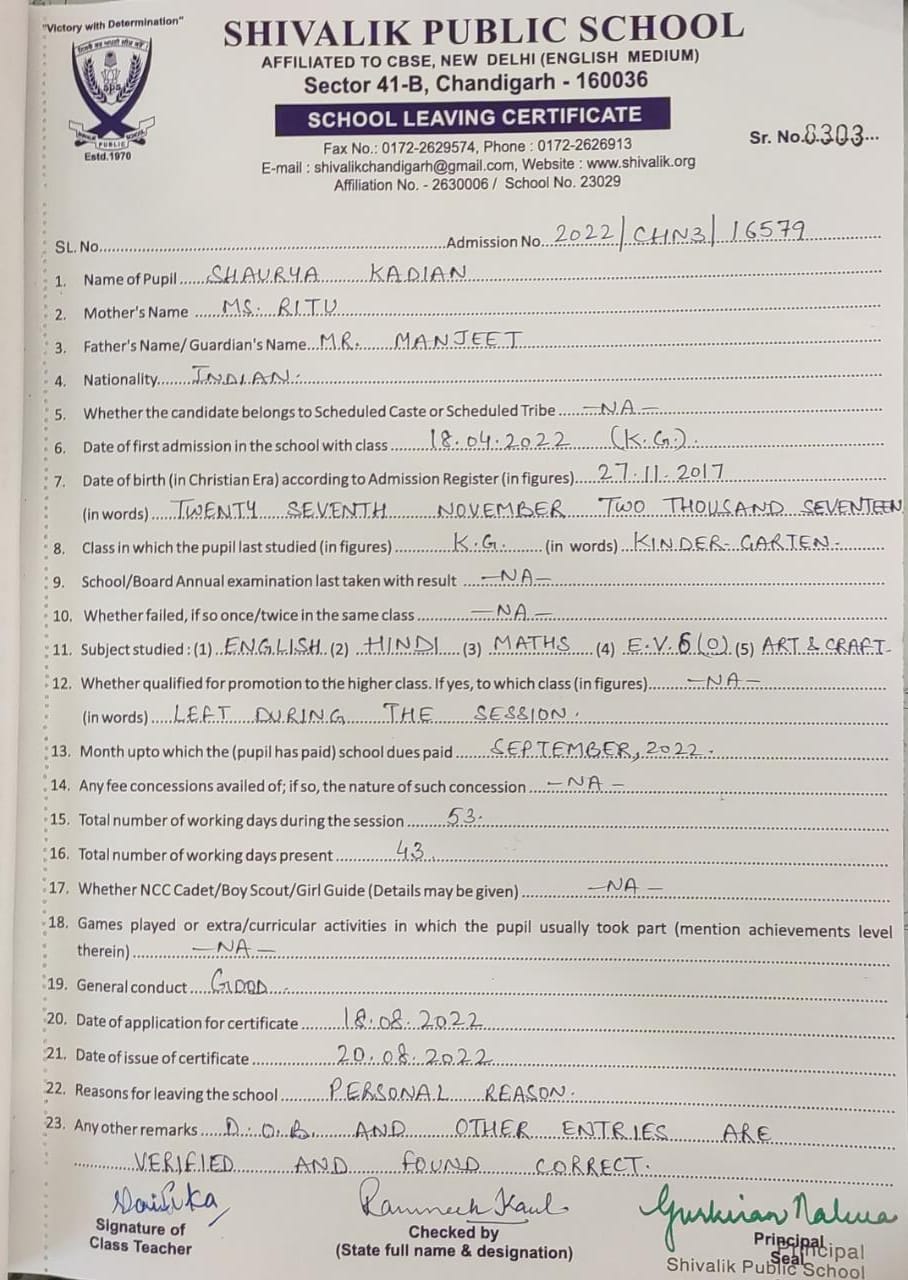 "Victory with Determination"
SHIVALIK PUBLIC SCHOOL
AFFILIATED TO CBSE, NEW DELHI (ENGLISH MEDIUM)
Sector 41-B, Chandigarh - 160036
SCHOOL LEAVING CERTIFICATE
Sr. No. 8303
Fax No.: 0172-2629574, Phone : 0172-2626913
E-mail : shivalikchandigarh@gmail.com, Website : www.shivalik.org
Affiliation No. - 2630006 / School No. 23029
sps
PUBLIC
Estd.1970
SL. No. Admission No. 2022/CHN3/16579
1. Name of Pupil SHAURYA KADIAN
2. Mother's Name MS. RITU
3. Father's Name/ Guardian's Name MR. MANJEET
4. Nationality INDIAN.
5. Whether the candidate belongs to Scheduled Caste or Scheduled Tribe -NA-
6. Date of first admission in the school with class 18.04.2022 (K.G.).
7. Date of birth (in Christian Era) according to Admission Register (in figures) 27.11.2017
(in words) TWENTY SEVENTH NOVEMBER TWO THOUSAND SEVENTEEN
8. Class in which the pupil last studied (in figures) K.G. (in words) KINDER-GARTEN-
9. School/Board Annual examination last taken with result -NA-
10. Whether failed, if so once/twice in the same class -NA-
11. Subject studied : (1) ENGLISH (2) HINDI (3) MATHS (4) E.V.S (O) (5) ART & CRAFT-
12. Whether qualified for promotion to the higher class. If yes, to which class (in figures) -NA-
(in words) LEFT DURING THE SESSION.
13. Month upto which the (pupil has paid) school dues paid SEPTEMBER, 2022.
14. Any fee concessions availed of; if so, the nature of such concession -NA-
15. Total number of working days during the session 53.
16. Total number of working days present 43
17. Whether NCC Cadet/Boy Scout/Girl Guide (Details may be given) -NA-
18. Games played or extra/curricular activities in which the pupil usually took part (mention achievements level
therein) -NA-
19. General conduct GOOD
20. Date of application for certificate 18.08.2022
21. Date of issue of certificate 20.08.2022
22. Reasons for leaving the school PERSONAL REASON.
23. Any other remarks D.O.B. AND OTHER ENTRIES ARE
VERIFIED AND FOUND CORRECT.
Gurkiran Nalwa
Signature of
Class Teacher
Checked by
(State full name & designation)
Principal
Seal
Principal
Shivalik Public School